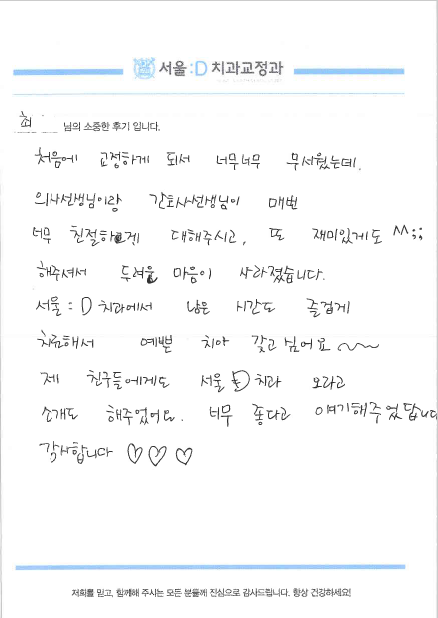 서울:D 치과교정과
최 님의 소중한 후기 입니다.
처음에 교정하게 되서 너무너무 무서웠는데,
의사선생님이랑 간호사선생님이 매번
너무 친절하게 대해주시고, 또 재미있게도 ^^;;
해주셔서 두려울 마음이 사라졌습니다.
서울:D 치과에서 남은 시간도 즐겁게
치료해서 예쁜 치아 갖고 싶어요~~
제 친구들에게도 서울:D치과 오라고
소개도 해주었어요. 너무 좋다고 얘기해주었답니다
감사합니다 ♡♡♡
저희를 믿고, 함께해 주시는 모든 분들께 진심으로 감사드립니다. 항상 건강하세요!